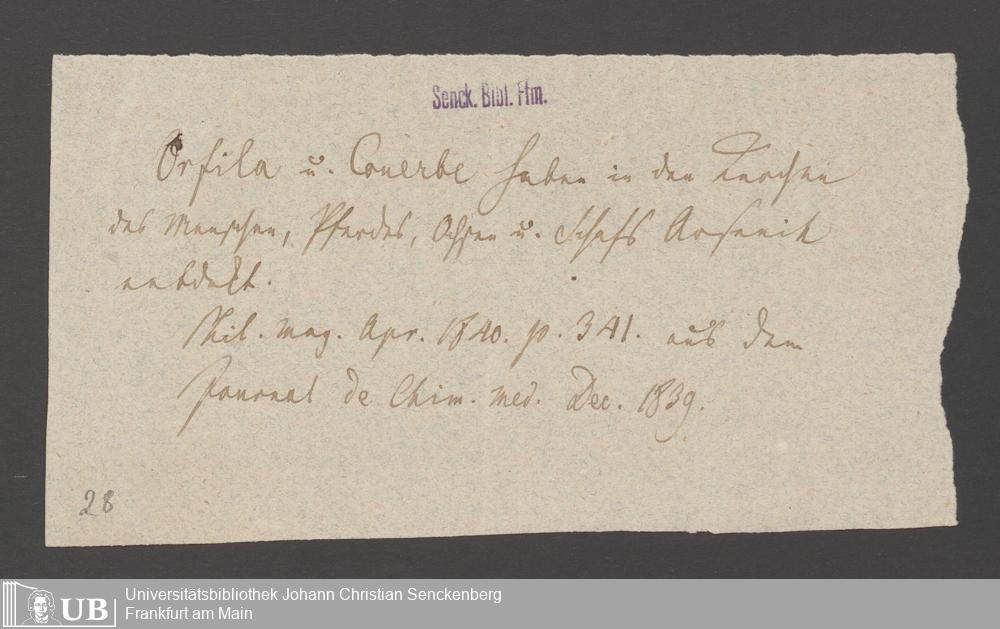 Senck. Bibl. Ffm.
Orfila u. Couerbe haben in den Knochen
des Menschen, Pferdes, Ochsen u. Schafs Arsenik
entdekt.
Phil. mag. Apr. 1840. p. 341. aus dem
Journal de Chim. med. Dec. 1839.
28
UB
Universitätsbibliothek Johann Christian Senckenberg
Frankfurt am Main